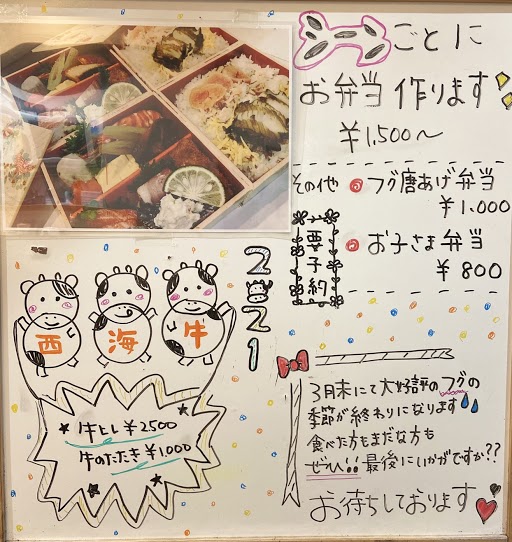 ごとに
お弁当作ります
¥1,500〜
その他 フグ唐あげ弁当
¥1.000
お子さま弁当
¥800
要予約
2021
西海牛
牛ヒレ ¥2500
牛のたたき ¥1,000
3月末にて大好評のフグの
季節が終わりになります
食べた方もまだな方も
ぜひ!!最後にいかがですか??
お待ちしております